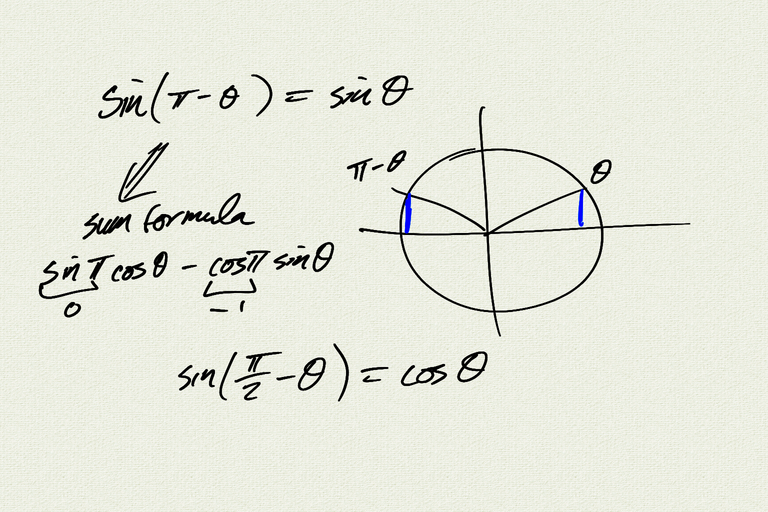 sin(π-θ) = sin θ
π-θ
θ
sum formula
sin π cos θ - cos π sin θ
0
-1
sin(π/2 - θ) = cos θ